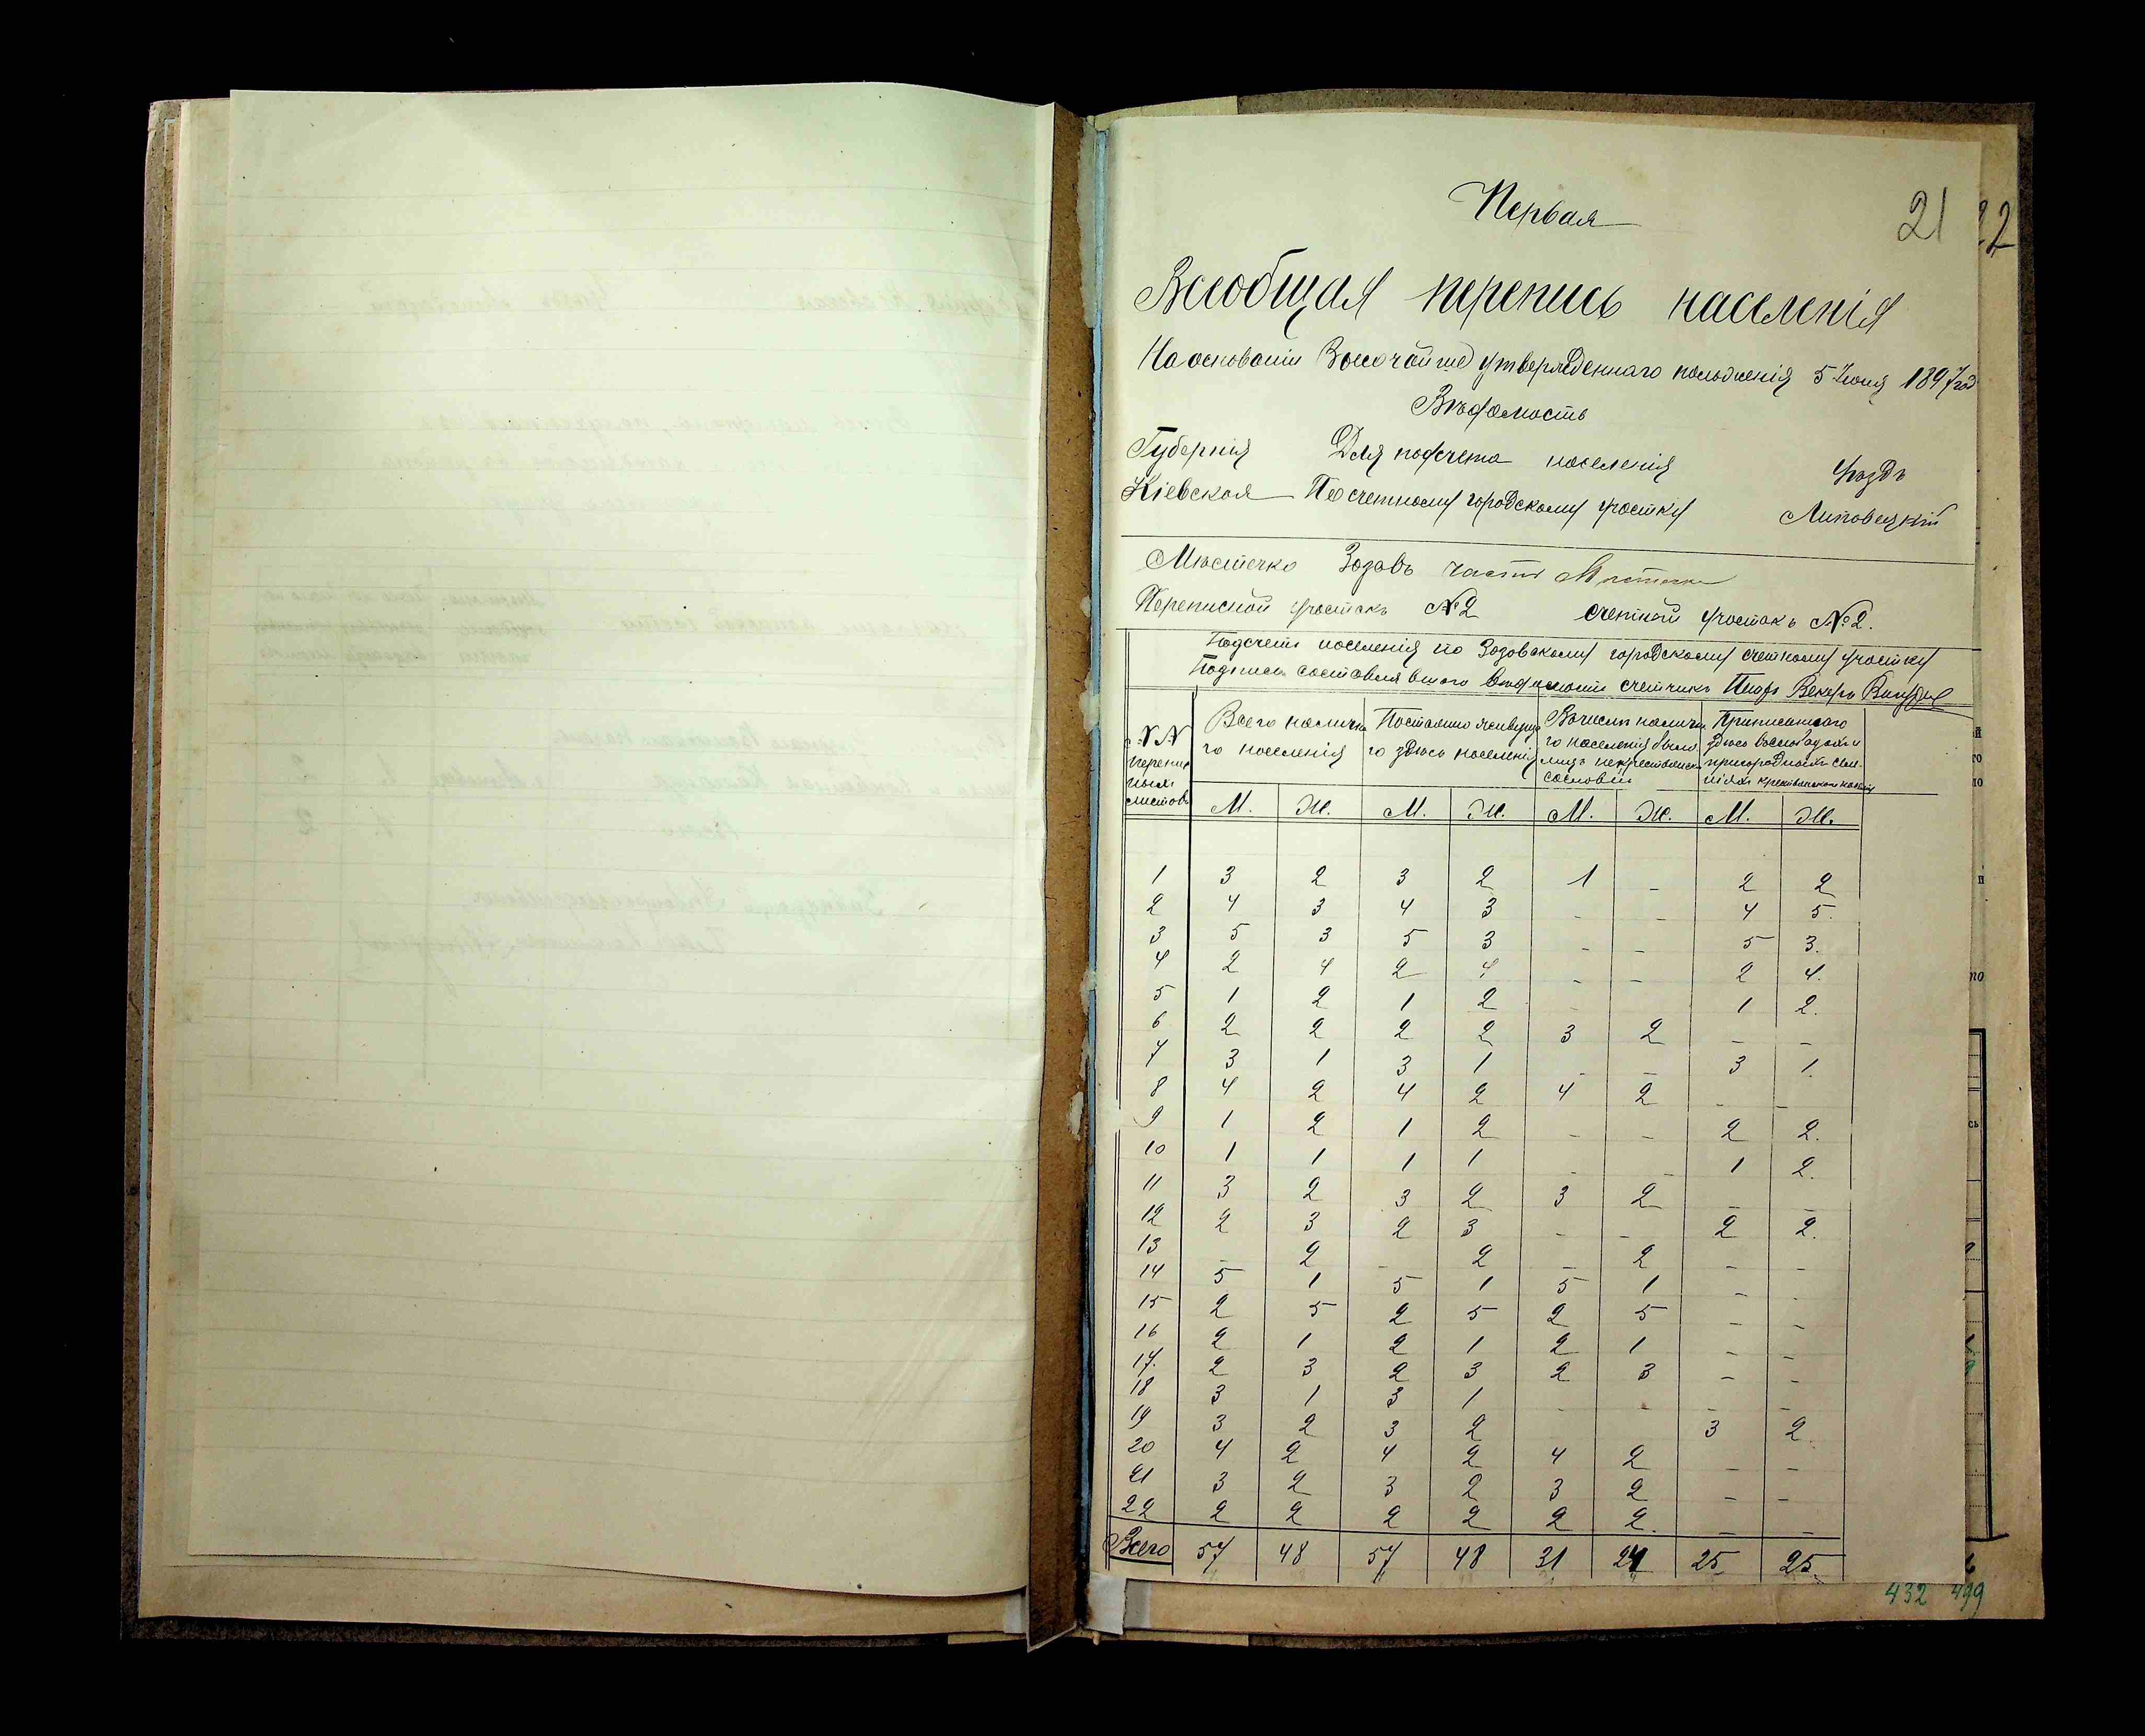 Первая
21
22
Всеобщая перепись населенія
На основаніи Высочайше утвержденнаго положенія 5 Іюня 1897 год
Вѣдомость
Губернія Для подсчета населенія Уѣздъ
Кіевская По счетному городскому участку Липовецкій
Мѣстечко Зозовъ часть Мѣстечка
Переписной участокъ №2 счетный участокъ №2.
Подсчетъ населенія по Зозовскому городскому счетному участку
Подпись составлявшаго вѣдомость счетчикъ
№№ переписныхъ листовъ
Всего налична го населенія
Постоянно живуща го здѣсь населенія
Въ числѣ налична го населенія было лицъ некрестьянск сословій
Приписаннаго здѣсь
М. Ж. М. Ж. М. Ж. М. Ж.
1 3 2 3 2 1 - 2 2
2 4 3 4 3 - - 4 5.
3 5 3 5 3 - - 5 3.
4 2 4 2 4 - - 2 4.
5 1 2 1 2 - - 1 2.
6 2 2 2 2 3 2 - -
7 3 1 3 1 - - 3 1.
8 4 2 4 2 4 2 - -
9 1 2 1 2 - - 2 2.
10 1 1 1 1 - - 1 2.
11 3 2 3 2 3 2 - -
12 2 3 2 3 - - 2 2.
13 - 2 - 2 - 2 - -
14 5 1 5 1 5 1 - -
15 2 5 2 5 2 5 - -
16 2 1 2 1 2 1 - -
17. 2 3 2 3 2 3 - -
18 3 1 3 1 - - - -
19 3 2 3 2 3 2.
20 4 2 4 2 4 2 - -
21 3 2 3 2 3 2 - -
22 2 2 2 2 2 2. - -
Всего 57 48 57 48 31 24 25 25.
432 499